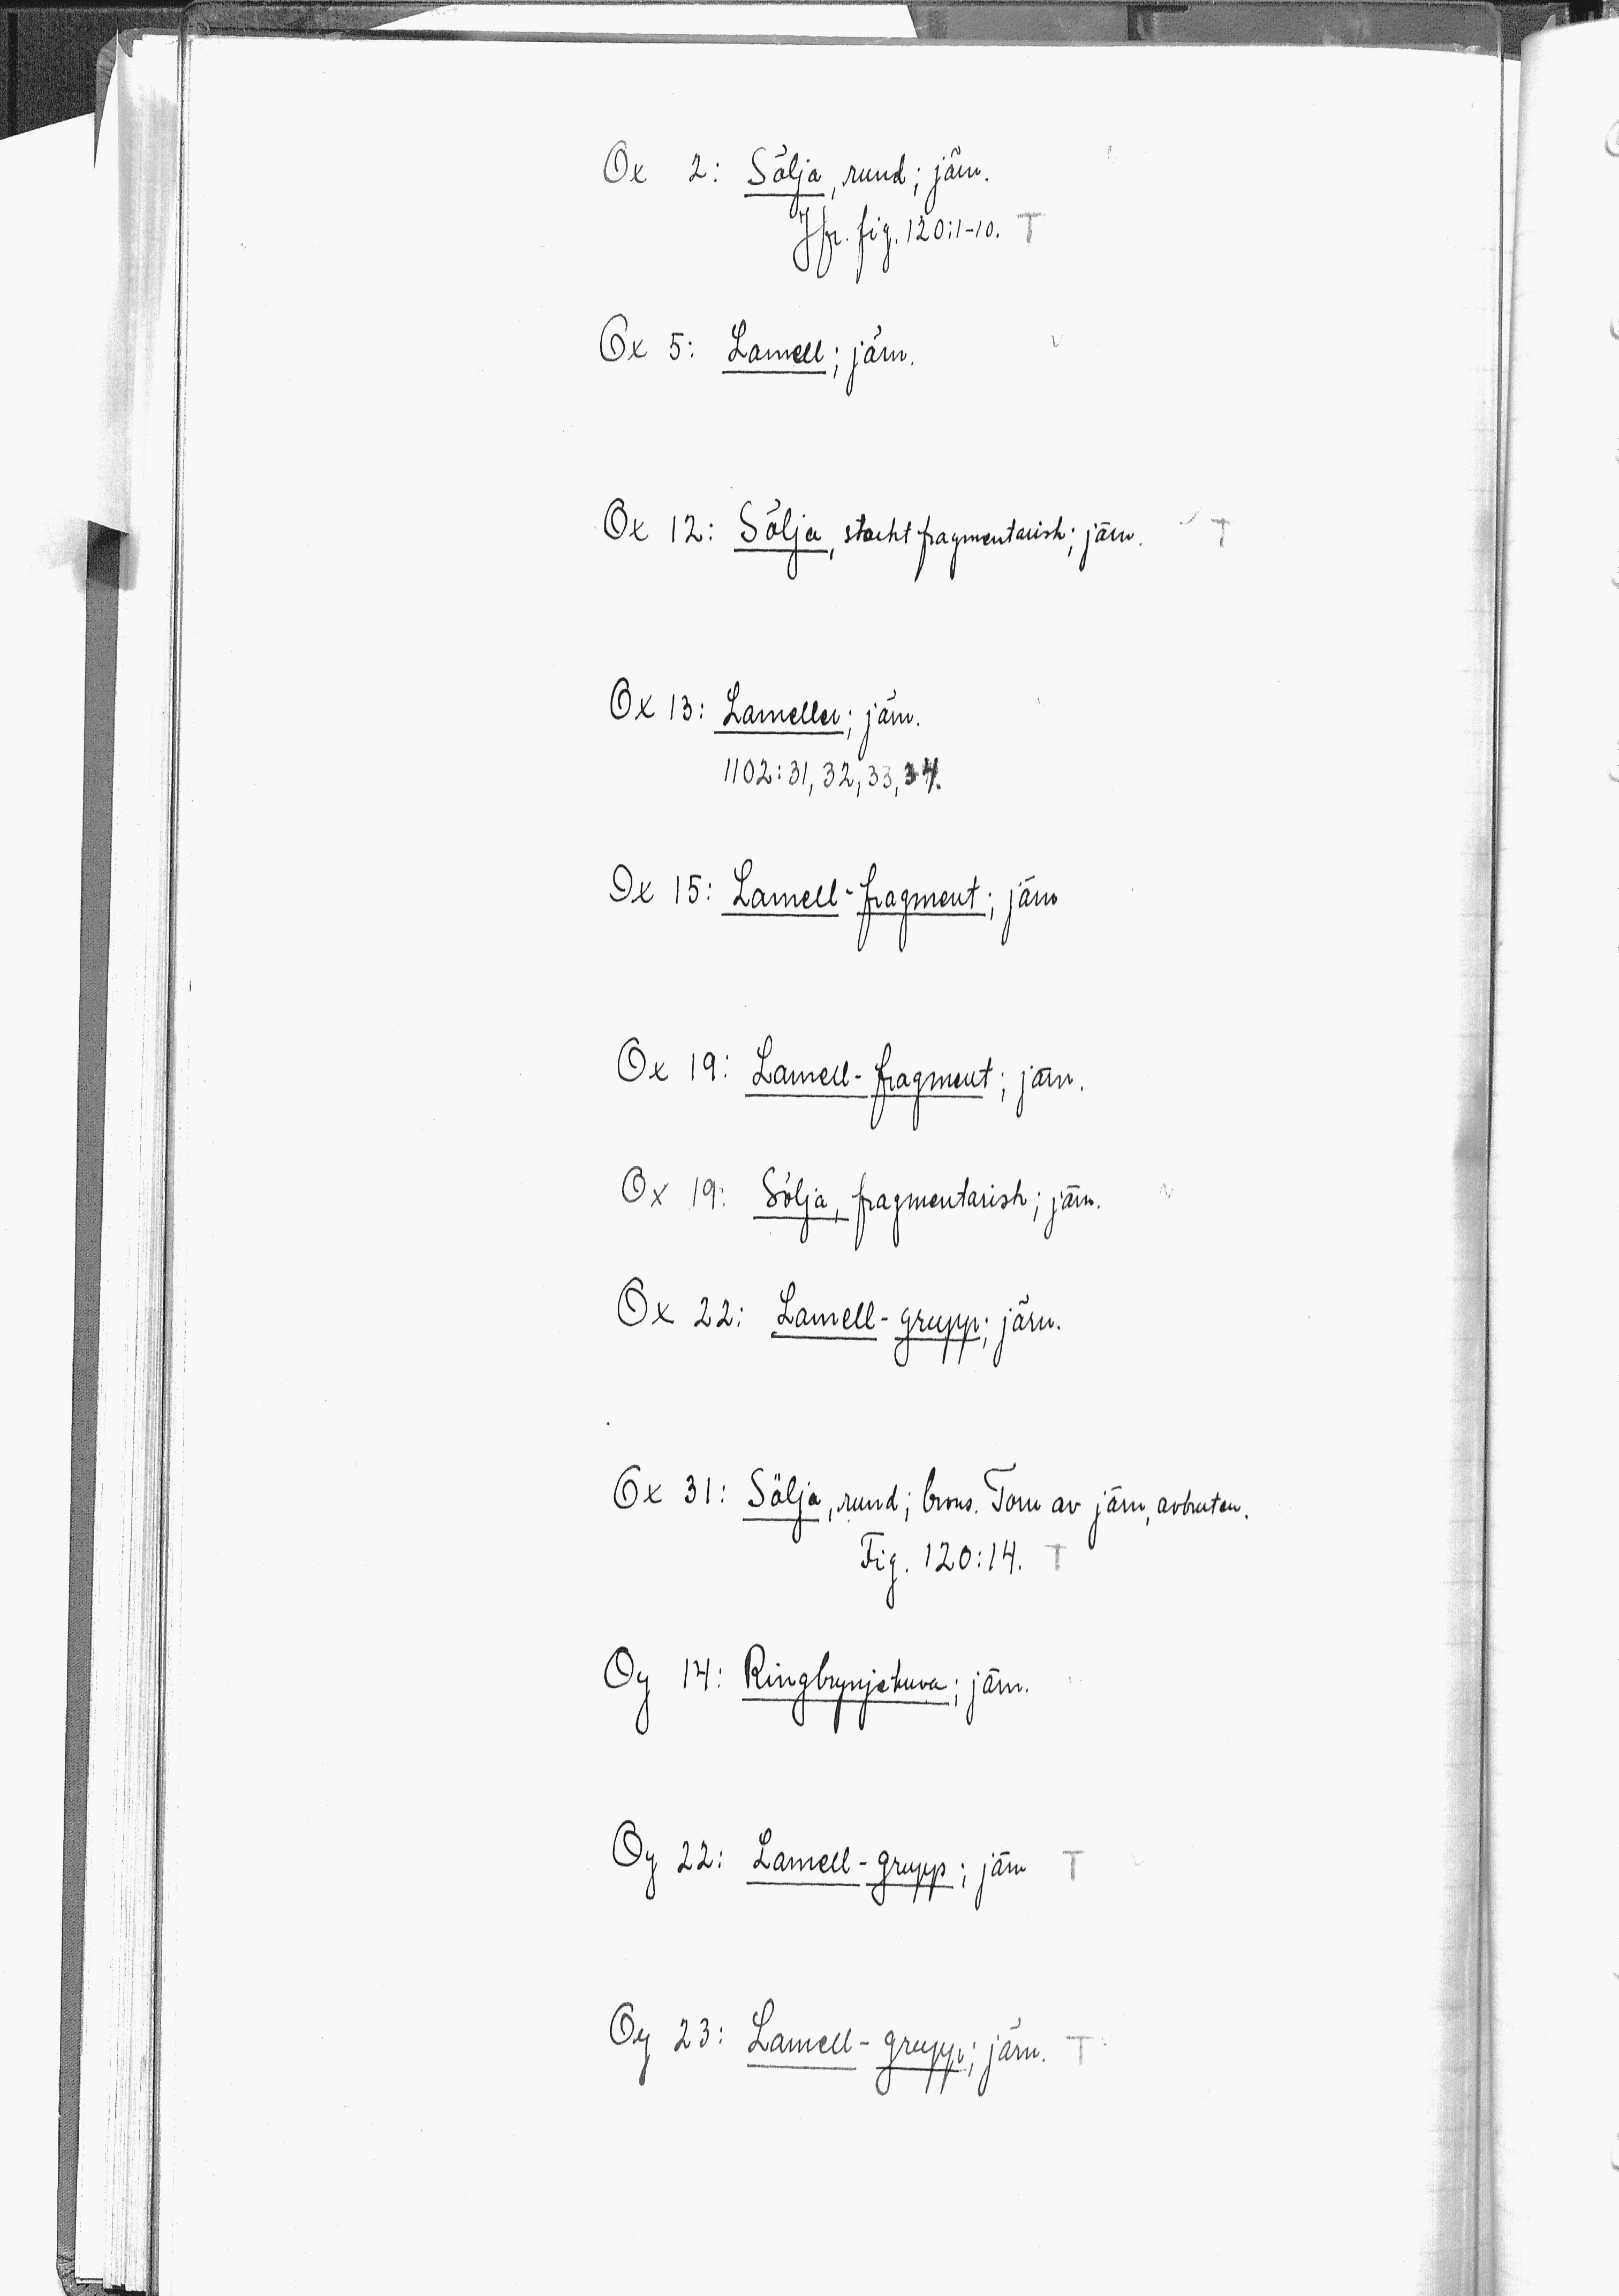 Ox 2: Sölja, rund; järn.
Jfr. fig. 120:1-10. T
Ox 5: Lamell; järn.
Ox 12: Sölja, starkt fragmentarisk; järn. T
Ox 13: Lameller; järn.
1102:31, 32, 33, 34.
Ox 15: Lamell-fragment; järn
Ox 19: Lamell-fragment; järn.
Ox 19: Sölja, fragmentarisk; järn.
Ox 22: Lamell-grupp; järn.
Ox 31: Sölja, rund; brons. Torn av järn, avbruten.
Fig. 120:14. T
Oy 14: Ringbrynjehuva; järn.
Oy 22: Lamell-grupp; järn T
Oy 23: Lamell-grupp; järn. T